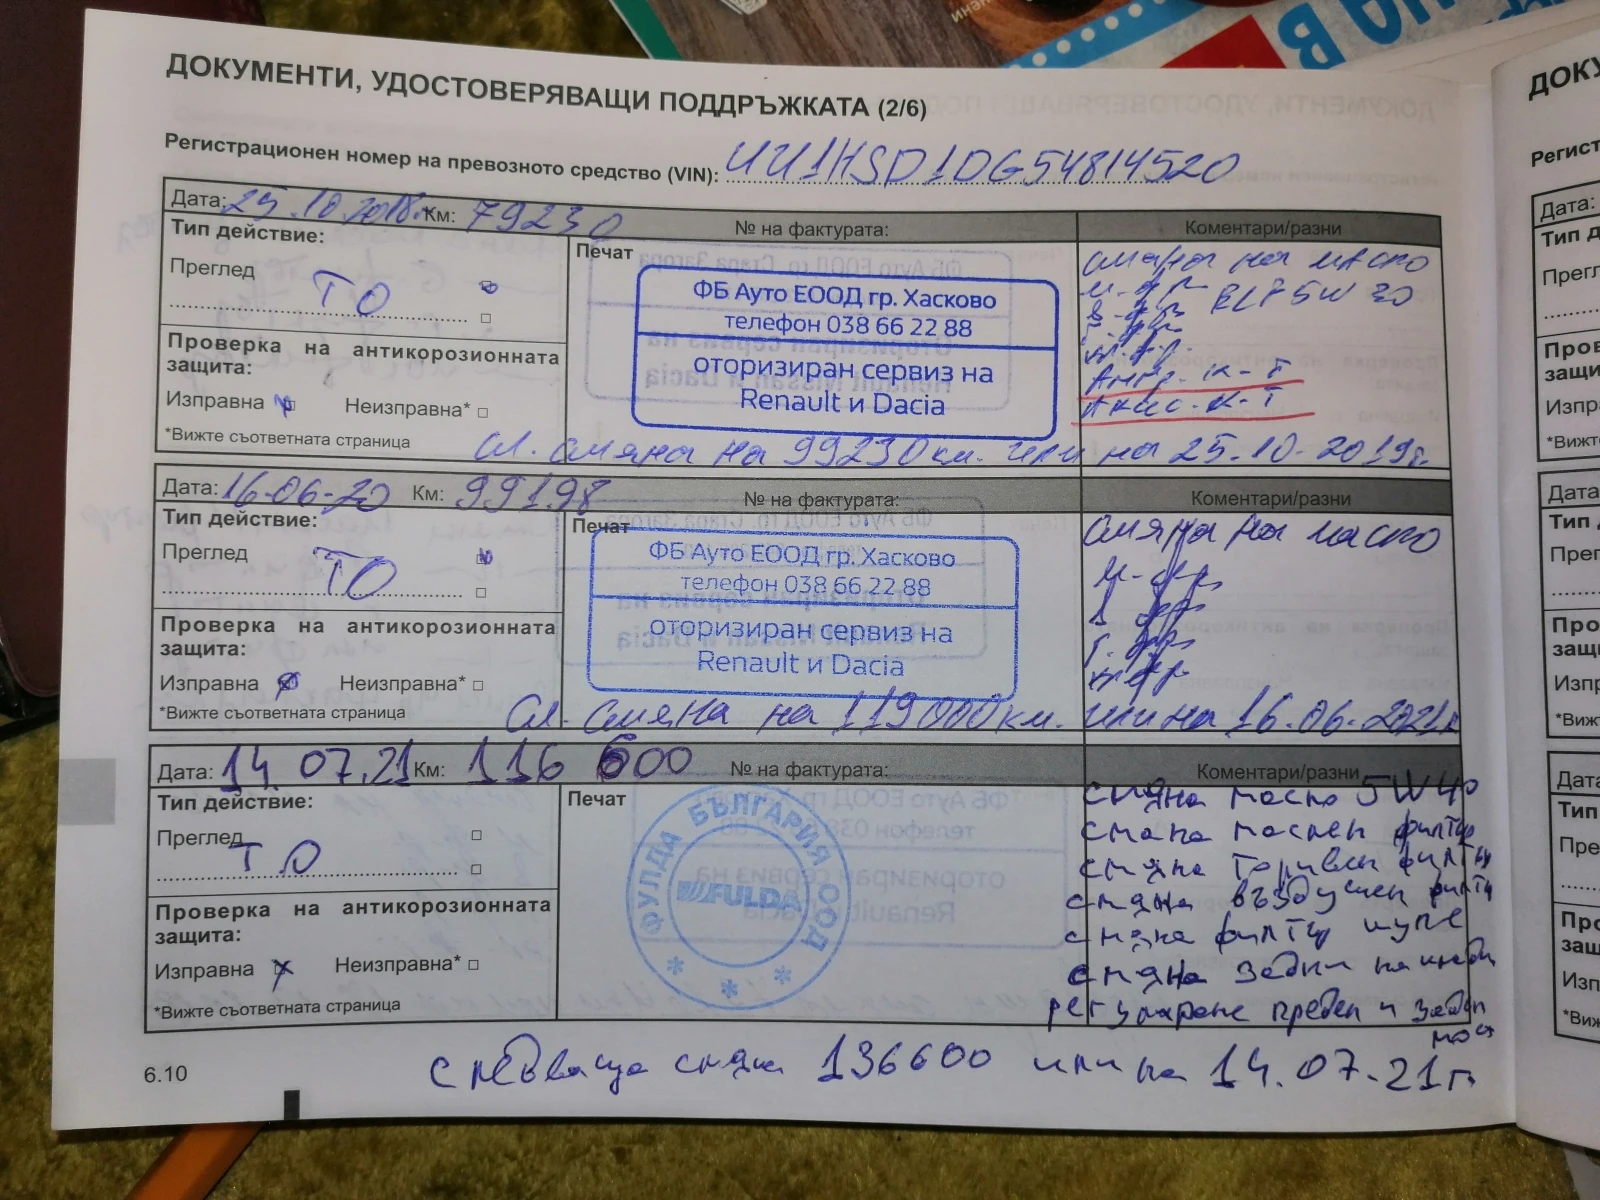 ДОКУМЕНТИ, УДОСТОВЕРЯВАЩИ ПОДДРЪЖКАТА (2/6)
Регистрационен номер на превозното средство (VIN): UU1HSD1DG54814520
Дата: 25.10.2018г. Км: 79230 № на фактурата: Коментари/разни
Тип действие:
Преглед
ТО
Проверка на антикорозионната
защита:
Изправна Неизправна*
*Вижте съответната страница
Печат
ФБ Ауто ЕООД гр. Хасково
телефон 038 66 22 88
оторизиран сервиз на
Renault и Dacia
смяна на масло
м-фр ELF 5W30
в-фр
г.фр
Амор. к-т
Акис. к-т
сл. смяна на 99230км. или на 25.10.2019г.
Дата: 16-06-20 Км: 99198 № на фактурата: Коментари/разни
Тип действие:
Преглед
ТО
Проверка на антикорозионната
защита:
Изправна Неизправна*
*Вижте съответната страница
Печат
ФБ Ауто ЕООД гр. Хасково
телефон 038 66 22 88
оторизиран сервиз на
Renault и Dacia
смяна на масло
м-фр
в фр
г.фр
сл. смяна на 119000км. или на 16.06.2021г
Дата: 14.07.21 Км: 116 600 № на фактурата: Коментари/разни
Тип действие:
Преглед
ТО
Проверка на антикорозионната
защита:
Изправна Неизправна*
*Вижте съответната страница
Печат
ФУЛДА БЪЛГАРИЯ ООД
FULDA
смяна масло 5W40
смяна маслен филтър
смяна горивен филтър
смяна въздушен филтър
смяна филтър купе
смяна задни накладки
регулиране преден и заден
мост
следваща смяна 136600 или на 14.07.21г.
6.10
ДОКУ
Регист
Дата:
Тип д
Прегл
Пров
защи
Изпр
*Вижт
Дата
Тип
Прег
Про
защи
Изпр
*Виж
Дата
Тип
Пре
Про
защ
Изп
*Виж